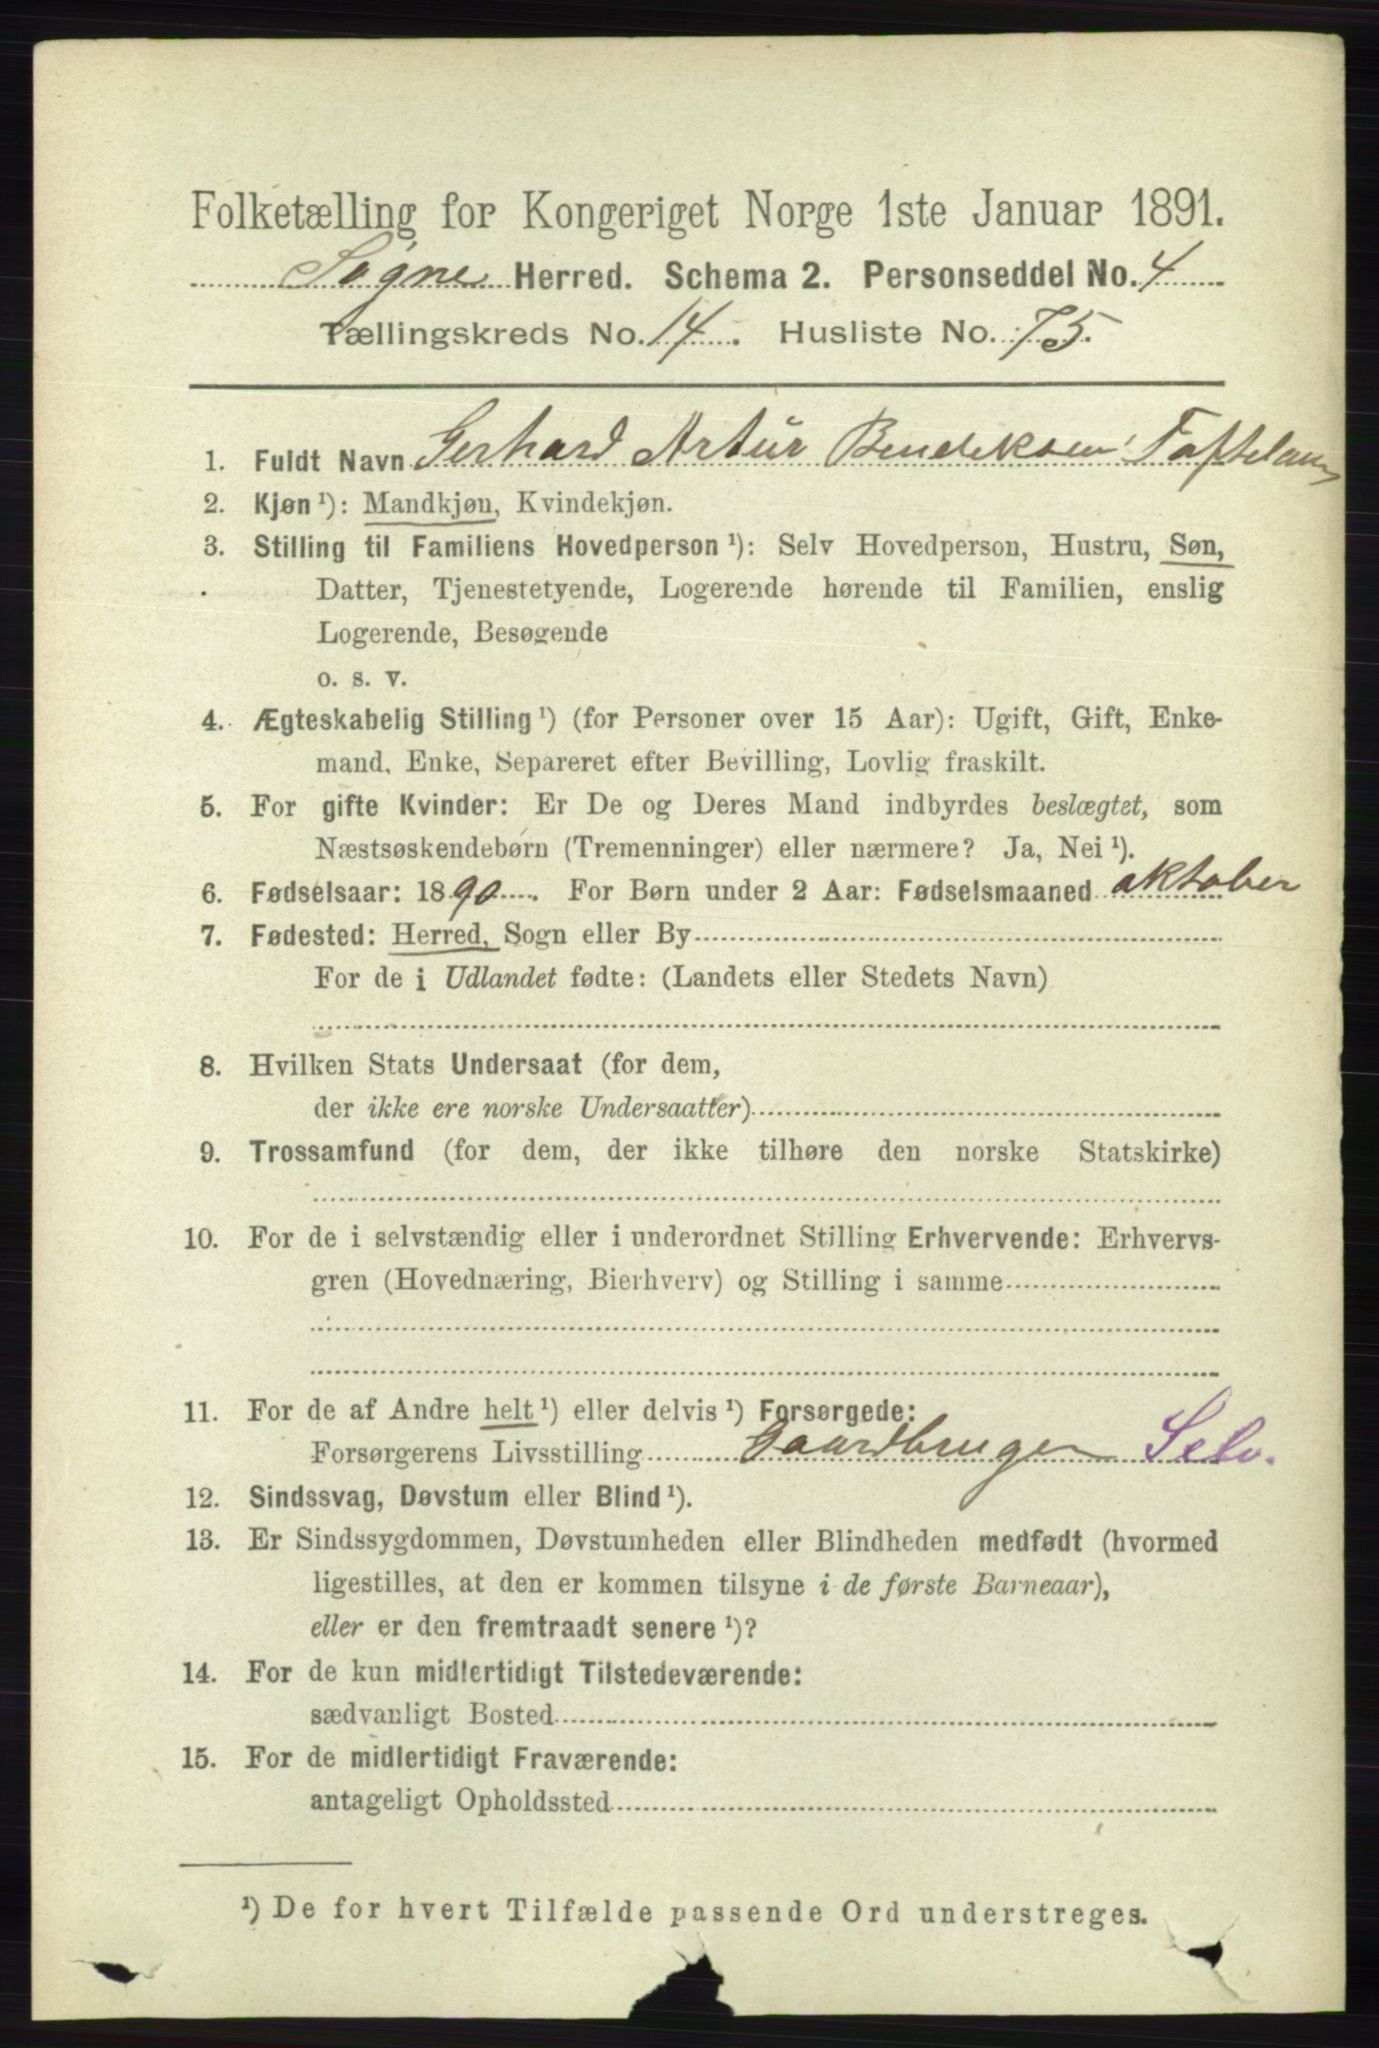 Folketælling for Kongeriget Norge 1ste Januar 1891.
Søgne Herred. Schema 2. Personseddel No. 4
Tællingskreds No. 14. Husliste No. 75.
1. Fuldt Navn Gerhard Artur Bendeksen Tafteland
2. Kjøn ¹): Mandkjøn, Kvindekjøn.
3. Stilling til Familiens Hovedperson ¹): Selv Hovedperson, Hustru, Søn,
Datter, Tjenestetyende, Logerende hørende til Familien, enslig
Logerende, Besøgende
o. s. v.
4. Ægteskabelig Stilling ¹) (for Personer over 15 Aar): Ugift, Gift, Enke-
mand, Enke, Separeret efter Bevilling, Lovlig fraskilt.
5. For gifte Kvinder: Er De og Deres Mand indbyrdes beslægtet, som
Næstsøskendebørn (Tremenninger) eller nærmere? Ja, Nei ¹).
6. Fødselsaar: 1890. For Børn under 2 Aar: Fødselsmaaned oktober
7. Fødested: Herred, Sogn eller By
For de i Udlandet fødte: (Landets eller Stedets Navn)
8. Hvilken Stats Undersaat (for dem,
der ikke ere norske Undersaatter)
9. Trossamfund (for dem, der ikke tilhøre den norske Statskirke)
10. For de i selvstændig eller i underordnet Stilling Erhvervende: Erhvervs-
gren (Hovednæring, Bierhverv) og Stilling i samme
11. For de af Andre helt ¹) eller delvis ¹) Forsørgede:
Forsørgerens Livsstilling Gaardbruger Selv.
12. Sindssvag, Døvstum eller Blind ¹).
13. Er Sindssygdommen, Døvstumheden eller Blindheden medfødt (hvormed
ligestilles, at den er kommen tilsyne i de første Barneaar),
eller er den fremtraadt senere ¹)?
14. For de kun midlertidigt Tilstedeværende:
sædvanligt Bosted
15. For de midlertidigt Fraværende:
antageligt Opholdssted
¹) De for hvert Tilfælde passende Ord understreges.